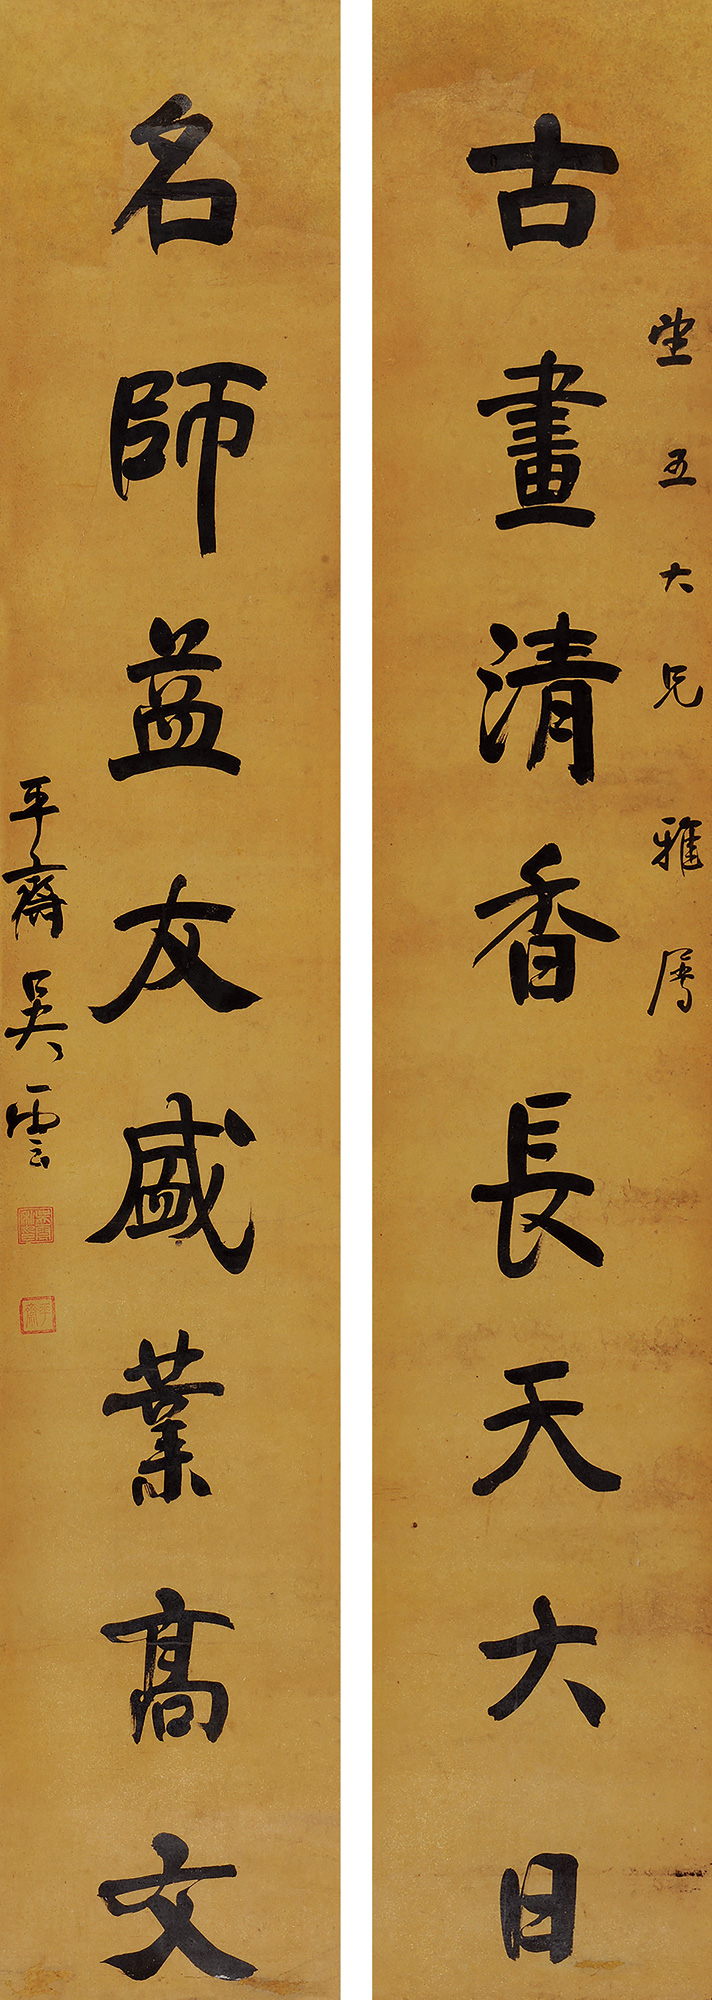 五大兄雅屬
古畫清香長天大日
名師益友盛業高文
平齋吳雲
平齋